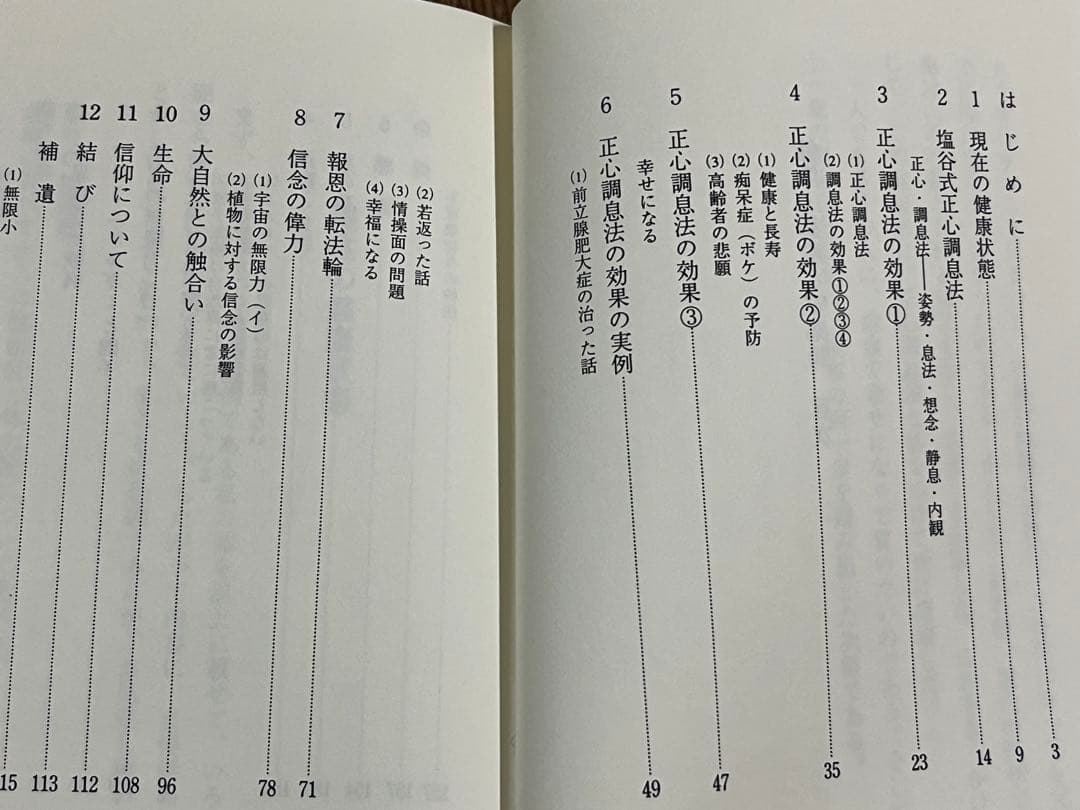 はじめに……3
1 現在の健康状態……9
2 塩谷式正心調息法……14
正心・調息法――姿勢・息法・想念・静息・内観
3 正心調息法の効果①……23
(1) 正心調息法
(2) 調息法の効果①②③④
4 正心調息法の効果②……35
(1) 健康と長寿
(2) 痴呆症（ボケ）の予防
(3) 高齢者の悲願
5 正心調息法の効果③……47
幸せになる
6 正心調息法の効果の実例……49
(1) 前立腺肥大症の治った話
(2) 若返った話
(3) 情操面の問題
(4) 幸福になる
7 報恩の転法輪……71
8 信念の偉力……78
(1) 宇宙の無限力（イ）
(2) 植物に対する信念の影響
9 大自然との触合い……96
10 生命……108
11 信仰について……112
12 結び……113
補遺……15
(1) 無限小